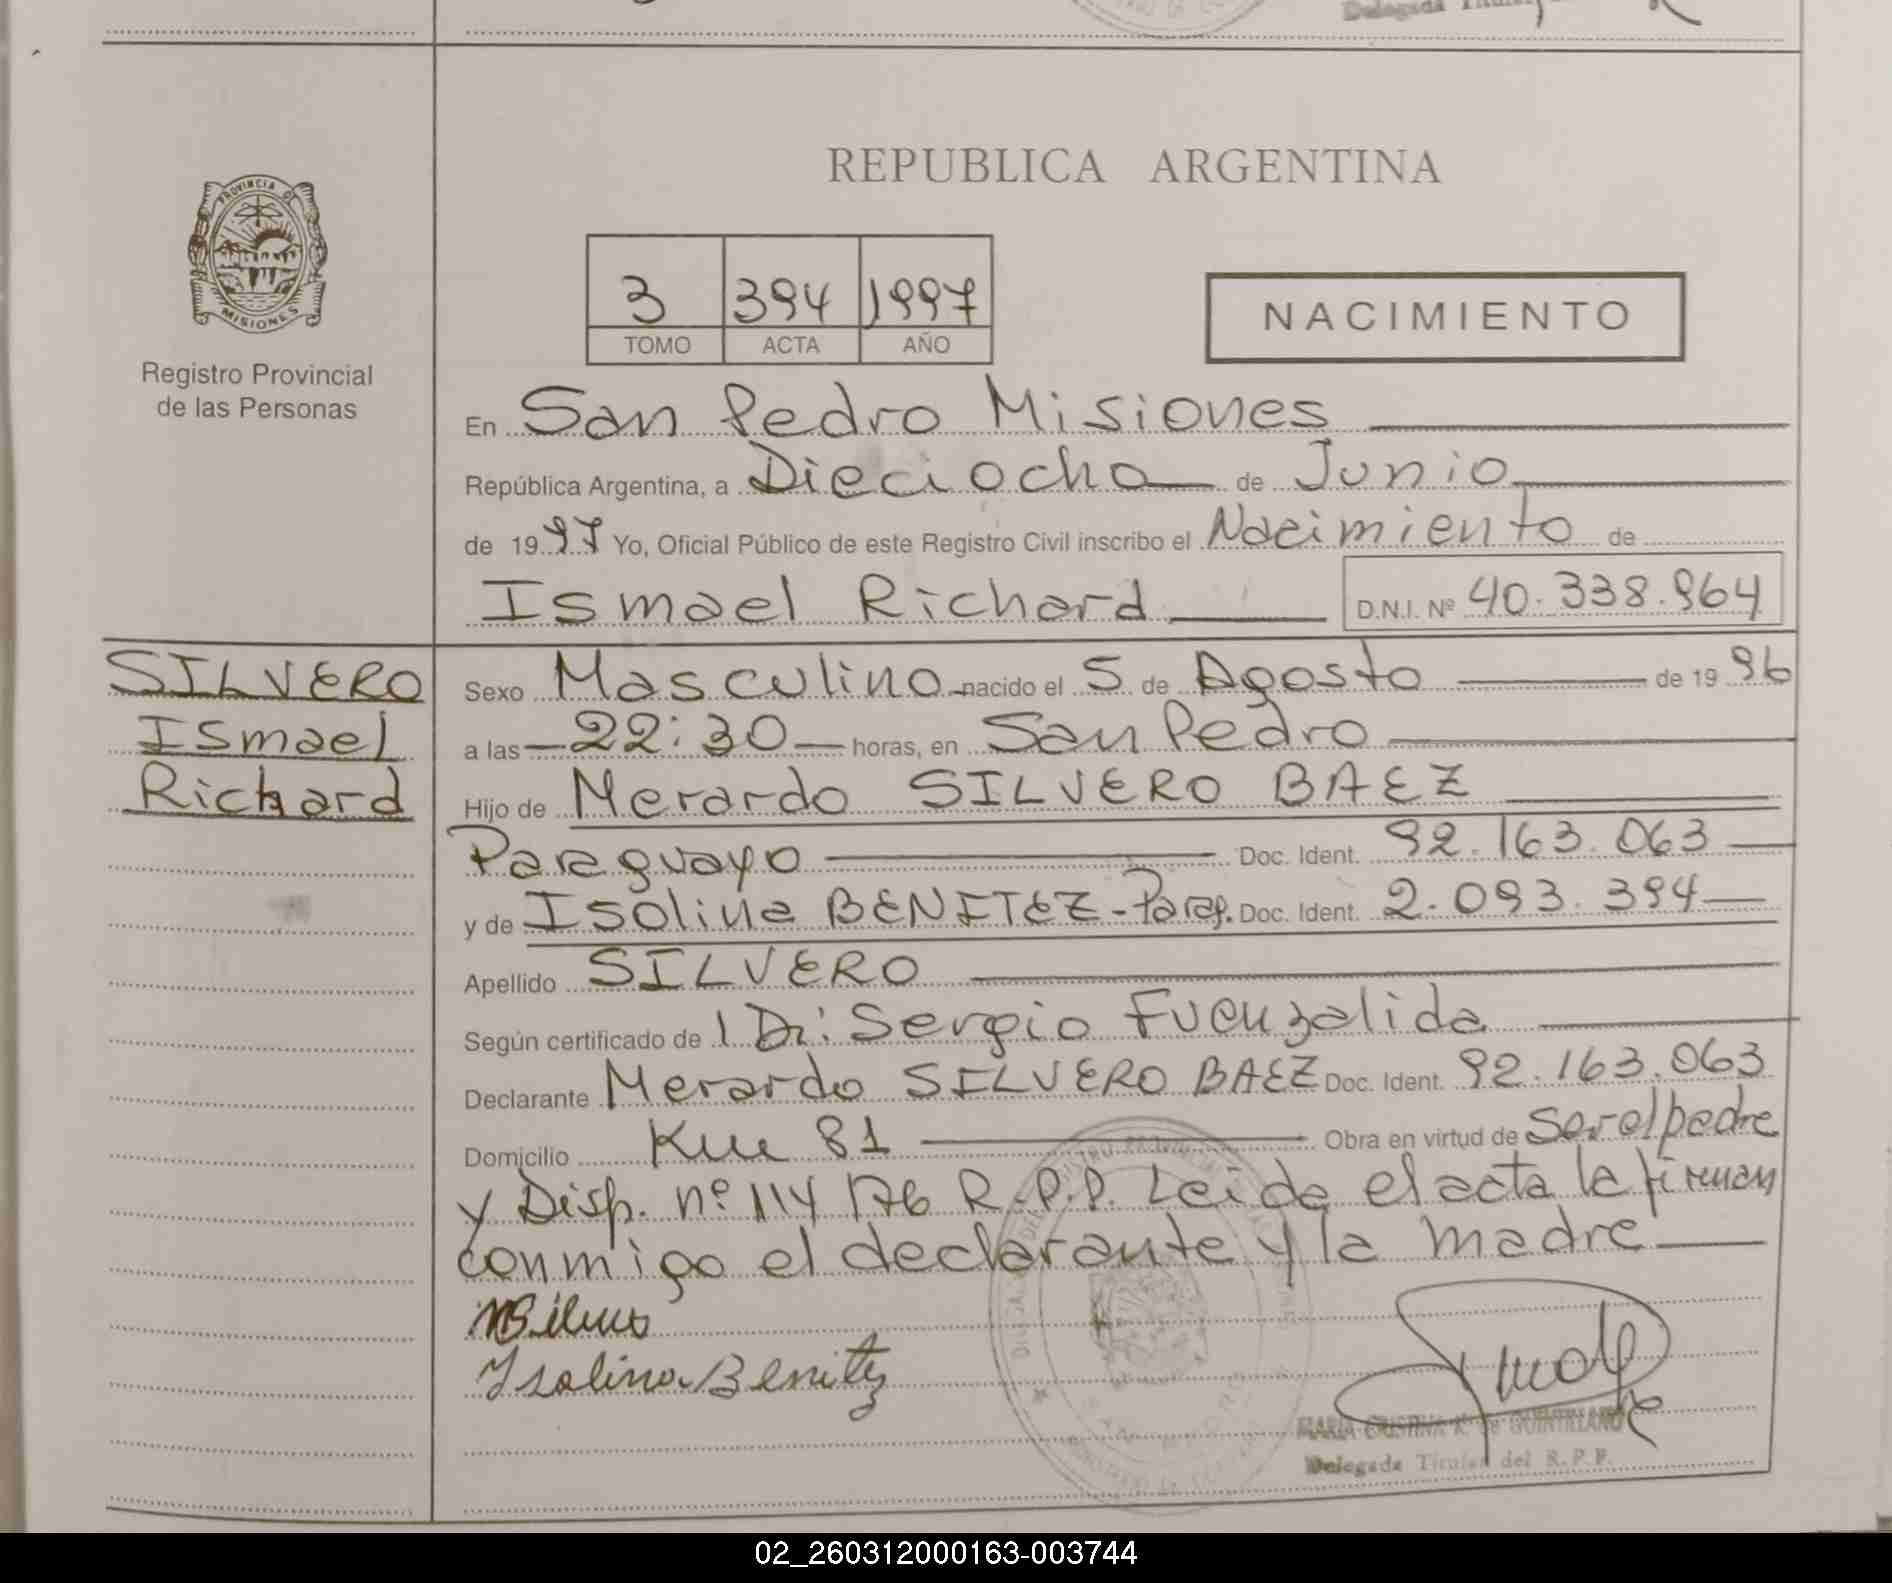 Delegada Titular
REPUBLICA ARGENTINA
PROVINCIA DE
MISIONES
Registro Provincial
de las Personas
3 394 1997
TOMO ACTA AÑO
NACIMIENTO
En San Pedro Misiones
República Argentina, a Dieciocho de Junio
de 1997 Yo, Oficial Público de este Registro Civil inscribo el Nacimiento de
Ismael Richard D.N.I. Nº 40.338.964
SILVERO
Ismael
Richard
Sexo Masculino nacido el 5 de Agosto de 1996
a las 22:30 horas, en San Pedro
Hijo de Merardo SILVERO BAEZ
Paraguayo Doc. Ident. 92.163.063
y de Isolina BENITEZ - Parag. Doc. Ident. 2.093.394
Apellido SILVERO
Según certificado de 1 Dr: Sergio Fuenzalida
Declarante Merardo SILVERO BAEZ Doc. Ident. 92.163.063
Domicilio Km 81 Obra en virtud de ser el padre
y Disp. nº 114/76 R.P.P. Leida el acta la firman
conmigo el declarante y la madre
Isolina Benitez
MARIA CRISTINA K. de QUINTILLANO
Delegada Titular del R.P.P.
02_260312000163-003744